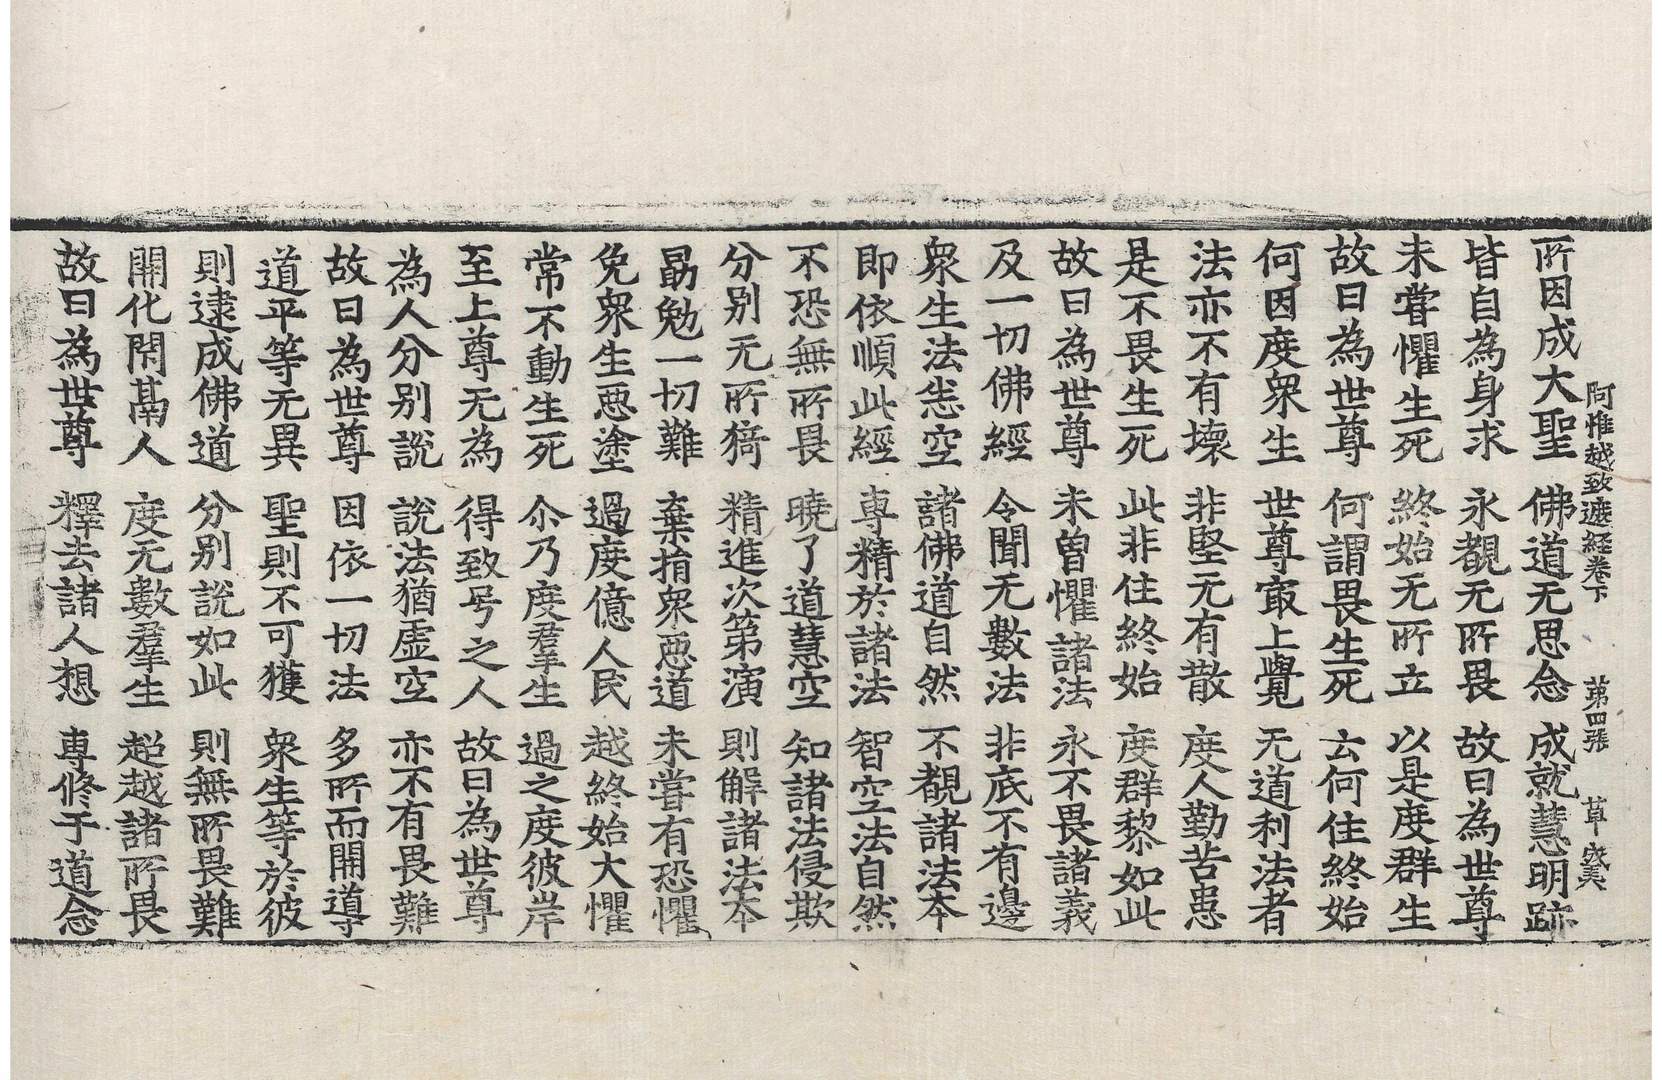 阿惟越致遮經卷下 第四張 草
所因成大聖 佛道无思念 成就慧明跡
皆自為身求 永覩无所畏 故曰為世尊
未甞懼生死 終始无所立 以是度群生
故曰為世尊 何謂畏生死 云何住終始
何因度衆生 世尊㝡上覺 无道利法者
法亦不有壞 非堅无有散 度人勤苦患
是不畏生死 此非住終始 度群黎如此
故曰為世尊 未曽懼諸法 永不畏諸義
及一切佛經 令聞无數法 非底不有邊
衆生法恙空 諸佛道自然 不覩諸法夲
即依順此經 專精於諸法 智空法自然
不恐無所畏 曉了道慧空 知諸法侵欺
分别无所猗 精進次第演 則解諸法夲
勗勉一切難 棄捐衆惡道 未甞有恐懼
免衆生惡塗 過度億人民 越終始大懼
常不動生死 尒乃度羣生 過之度彼岸
至上尊无為 得致号之人 故曰為世尊
為人分别說 說法猶虛空 亦不有畏難
故曰為世尊 因依一切法 多所而開導
道平等无異 聖則不可獲 衆生等於彼
則逮成佛道 分别說如此 則無所畏難
開化閇鬲人 度无數羣生 超越諸所畏
故曰為世尊 釋去諸人想 專修于道念